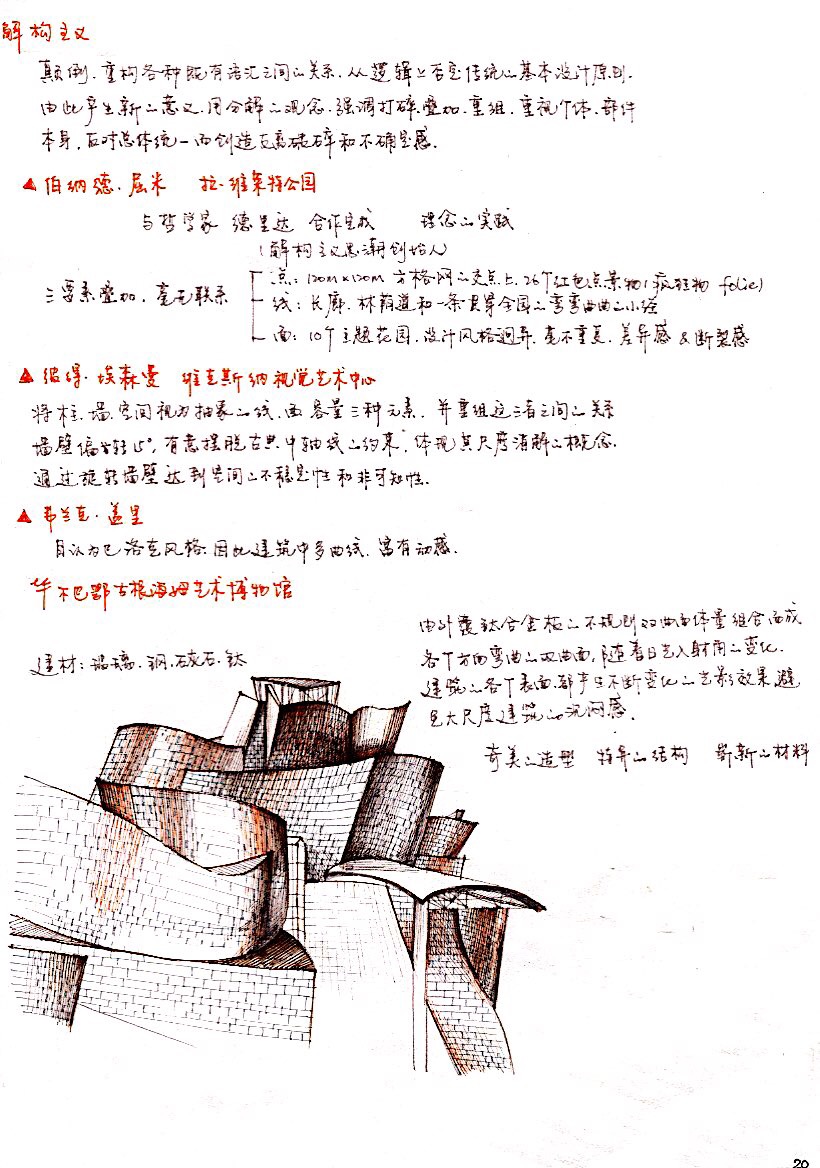 解构主义
颠倒、重构各种既有语汇之间的关系，从逻辑上否定传统的基本设计原则，
由此产生新的意义，用分解的观念，强调打碎、叠加、重组，重视个体、部件
本身，反对总体统一而创造支离破碎和不确定感。
▲ 伯纳德·屈米 拉·维莱特公园
与哲学家 德里达 合作完成 理念的实践
（解构主义思潮创始人）
三要素叠加，毫无联系
点：120m×120m 方格网的交点上，26个红色点景物（疯狂物 folie）
线：长廊、林荫道和一条贯穿全园的弯弯曲曲的小径
面：10个主题花园，设计风格迥异，毫不重复，差异感 & 断裂感
▲ 彼得·埃森曼 维克斯纳视觉艺术中心
将柱、墙、空间视为抽象的线、面、容量三种元素，并重组这三者之间的关系
墙壁偏转15°，有意摆脱古典"中轴线的约束"，体现其尺度消解的概念。
通过旋转墙壁达到空间的不稳定性和非可知性。
▲ 弗兰克·盖里
自认为巴洛克风格，因此建筑中多曲线，富有动感。
毕尔巴鄂古根海姆艺术博物馆
建材：玻璃、钢、石灰石、钛
由外裹钛合金板的不规则双曲面体量组合而成
各个方向弯曲的双曲面，随着日光入射角的变化，
建筑的各个表面都产生不断变化的光影效果，避
免大尺度建筑的沉闷感。
奇美的造型 特异的结构 崭新的材料
20